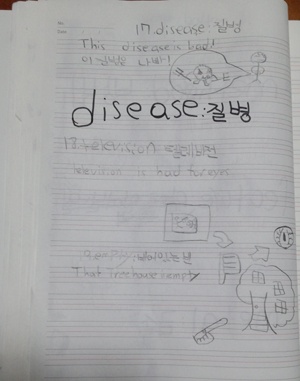 17. disease: 질병
This disease is bad!
이 질병은 나빠!
disease: 질병
18. television: 텔레비전
television is bad for
That treehouse empty